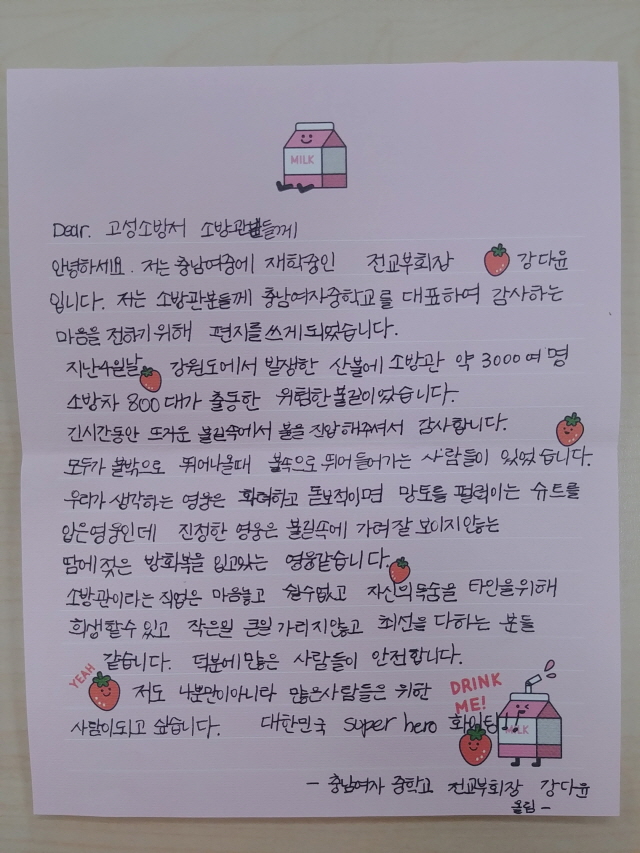 MILK
Dear. 고성소방서 소방관분들께
안녕하세요. 저는 충남여중에 재학중인 전교부회장 강다윤
입니다. 저는 소방관분들께 충남여자중학교를 대표하여 감사하는
마음을 전하기위해 편지를 쓰게되었습니다.
지난4월날 강원도에서 발생한 산불에 소방관 약 3000여명
소방차 800대가 출동한 위험한불길이었습니다.
긴시간동안 뜨거운 불길속에서 불을 진압해주셔서 감사합니다.
모두가 불밖으로 뛰어나올때 불속으로 뛰어들어가는 사람들이 있었습니다.
우리가 생각하는 영웅은 화려하고 돋보적이며 망토를 펄럭이는 슈트를
입은영웅인데 진정한 영웅은 불길속에 가려잘보이지않는
땀에젖은 방화복을 입고있는 영웅같습니다.
소방관이라는 직업은 마음놓고 쉴수없고 자신의목숨을 타인을위해
희생할수있고 작은일 큰일 가리지않고 최선을 다하는 분들
같습니다. 덕분에 많은 사람들이 안전합니다.
YEAH
저도 나뿐만이아니라 많은사람들은 위한
DRINK
ME!
사람이되고 싶습니다. 대한민국 super hero 화이팅!!
MILK
- 충남여자 중학교 전교부회장 강다윤
올림 -